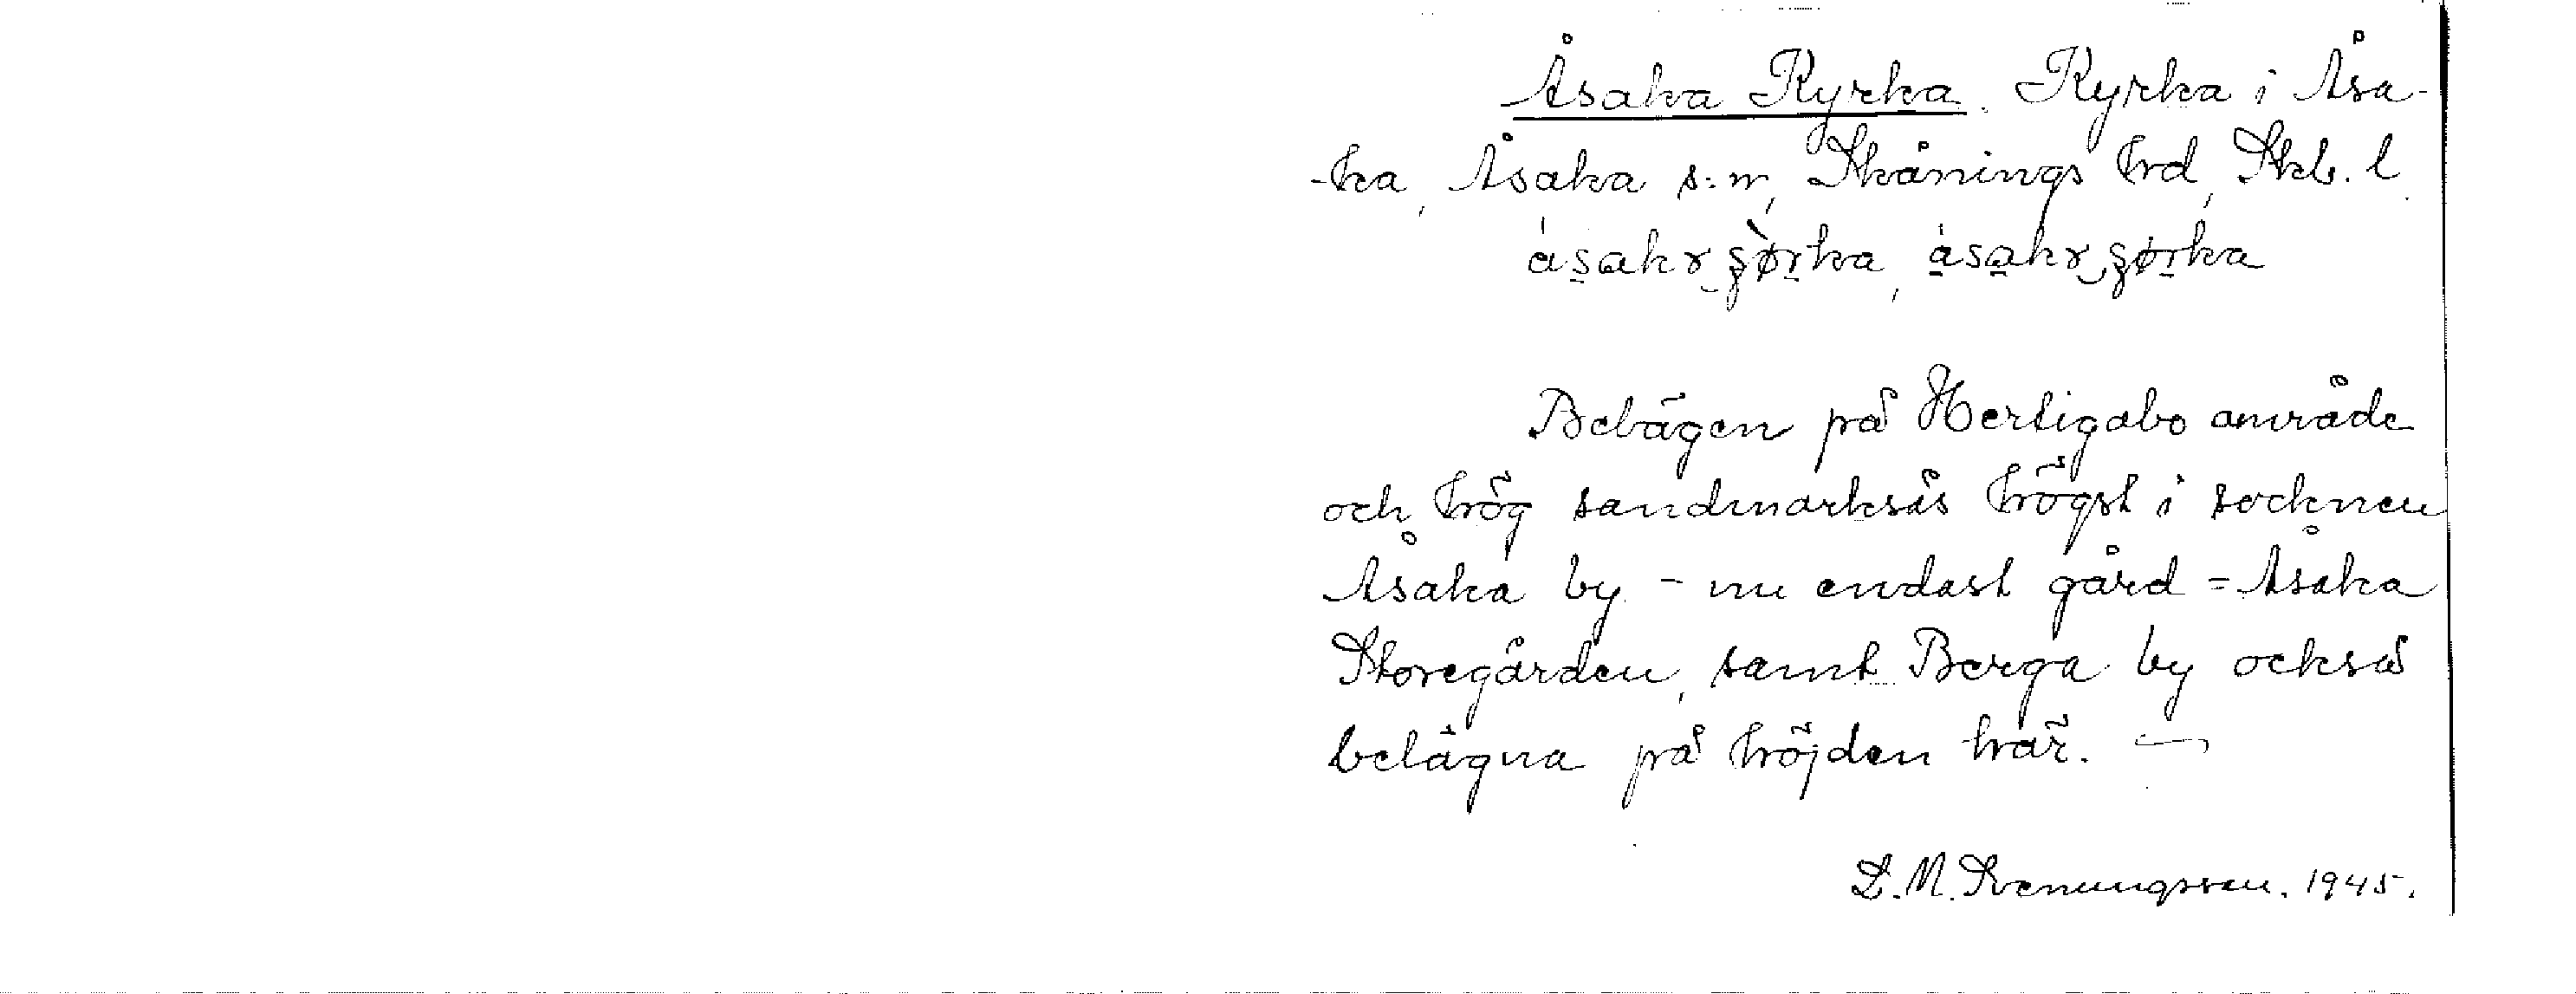 Åsaka Kyrka. Kyrka i Åsa-
-ka, Åsaka s:n, Skånings hd, Skb. l.
Belägen på Hertigabo område
och hög sandmarksås högst i socknen
Åsaka by - nu endast gård = Åsaka
Storegården, samt Berga by också
belägna på höjden här. —
S. M. Svenungsson. 1945.